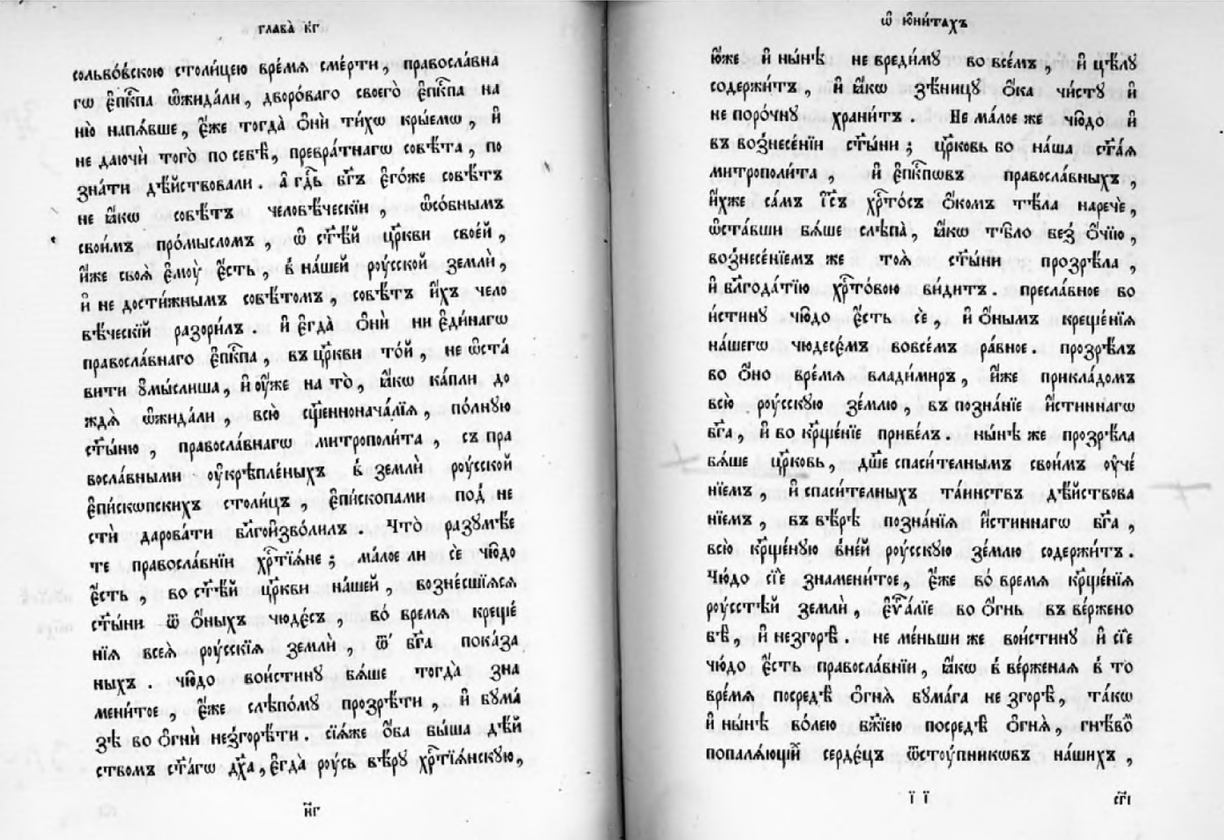 глава̀ к҃г
сольво́вскою столи́цею вре́мя сме́рти, правосла́вна
гѡ є҆пⷭ҇кпа ѡ҆жида́ли, дворо́ваго своего̀ є҆пⷭ҇кпа на
ню̀ напя́вше, є҆́же тогда̀ ѻ҆нѝ ти́хѡ кры́емѡ, и҆
не даючѝ того̀ по себѣ̀, превра́тнагѡ совѣ́та, по
зна́ти дѣ́йствовали. а҆ гдⷭ҇ь бг҃ъ є҆го́же совѣ́тъ
не ꙗ҆́кѡ совѣ́тъ человѣ́ческїи, ѡ҆со́бнымъ
свои́мъ про́мысломъ, ѡ҆ ст҃ѣ́й цр҃кви свое́й,
и҆́же своѧ̀ є҆моу̀ є҆́сть, в̾ на́шей роу́сской землѝ,
и҆ не дости́жнымъ совѣ́томъ, совѣ́тъ и҆́хъ чело
вѣ́ческїй разори́лъ. и҆ є҆гда̀ ѻ҆нѝ ни є҆ди́нагѡ
правосла́внаго є҆пⷭ҇кпа, въ цр҃кви то́й, не ѡ҆ста́
вити ᲂумы́слиша, и҆ оу҆́же на то̀, ꙗ҆́кѡ ка́пли до
ждѧ̀ ѡ҆жида́ли, всю̀ сщ҃енонача́лїѧ, по́лную
ст҃ы́ню, правосла́внагѡ митропо́лїта, съ пра
восла́вными оу҆крѣпле́ныхъ в̾ землѝ роу́сской
є҆пи́скѡпскихъ столи́цъ, є҆пи́скопами под̾ не
стѝ дарова́ти бл҃гоизво́лилъ. Что̀ разумѣ́е
те правосла́внїи хрⷭ҇тїѧ́не; ма́лое ли сѐ чю́до
є҆́сть, во ст҃ѣ́й цр҃кви на́шей, вознесшїѧсѧ
ст҃ы́ни ѿ ѻ҆́ныхъ чюде́съ, во́ время креще́
нїѧ всеѧ̀ роу́сскїѧ землѝ, ѿ бг҃а пока́за
ныхъ. чю́до вои́стину бѧ́ше тогда̀ зна
мени́тое, є҆́же слѣпо́му прозрѣ́ти, и҆ бума́
зѣ во ѻ҆гнѝ незгорѣ́ти. сїѧ́же ѻ҆́ба бы́ша дѣ́й
ствомъ ст҃а́гѡ дх҃а, є҆гда̀ роу́сь вѣ́ру хрⷭ҇тїѧ́нскую,
н҃г
ѡ҆ ю҆ни́тахъ
ю҆́же и҆ ны́нѣ не вреди́му во все́мъ, и҆ цѣ́лу
содержи́тъ, и҆ ꙗ҆́кѡ зѣ́ницу ѻ҆́ка чи́сту и҆
не поро́чну храни́тъ. Не ма́лое же чю́до и҆
въ вознесе́нїи ст҃ы́ни; цр҃ковь бо на́ша ст҃а́ѧ
митропо́лїта, и҆ є҆пⷭ҇кпѡвъ правосла́вныхъ,
и҆́хже са́мъ і҆с҃ъ хрⷭ҇то́съ ѻ҆́комъ тѣ́ла нарече́,
ѡ҆ста́вши бѧ́ше слѣпа̀, ꙗ҆́кѡ тѣ́ло без̾ ѻ҆чїю̀,
вознесе́нїемъ же тоѧ̀ ст҃ы́ни прозрѣ́ла,
и҆ бл҃года́тїю хрⷭ҇то́вою ви́дитъ. пресла́вное во
и́стину чю́до є҆́сть сѐ, и҆ ѻ҆́нымъ креще́нїѧ
на́шегѡ чюдесе́мъ вовсе́мъ ра́вное. прозрѣ́лъ
во ѻ҆́но вре́мѧ влади́миръ, и҆́же прикла́домъ
всю̀ роу́сскую зе́млю, въ позна́нїе и҆́стиннагѡ
бг҃а, и҆ во крⷭ҇ще́нїе приве́лъ. ны́нѣ же прозрѣ́ла
бѧ́ше цр҃ковь, дш҃е спаси́телнымъ свои́мъ оу҆че́
нїемъ, и҆ спаси́телныхъ та́инствъ дѣ́йствова
нїемъ, въ вѣ́рѣ позна́нїѧ и҆́стиннагѡ бг҃а,
всю̀ крⷭ҇ще́ную в̾не́й роу́сскую зе́млю содержи́тъ.
Чю́до сїѐ знамени́тое, є҆́же во́ время крⷭ҇ще́нїѧ
роу́сстѣй землѝ, є҆ѵⷢ҇а́лїе во ѻ҆́гнь въ ве́ржено
бѣ̀, и҆ незгорѣ̀. не ме́ньши же вои́стину и҆ сїѐ
чю́до є҆́сть правосла́внїи, ꙗ҆́кѡ в̾ ве́рженаѧ в̾ то
вре́мѧ посредѣ̀ ѻ҆гнѧ̀ бума́га не згорѣ̀, та́кѡ
и҆ ны́нѣ во́лею бж҃їею посредѣ̀ ѻ҆гнѧ̀, гнѣ́во
попалѧ́ющїй серде́цъ ѿстоу́пникѡвъ на́шихъ,
ї ї
сг҃і